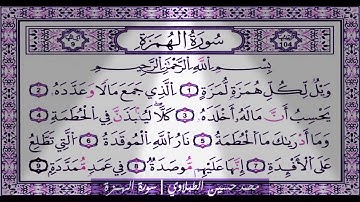 سورة الهمزة
104
9
بِسْمِ اللَّهِ الرَّحْمَٰنِ الرَّحِيمِ
وَيْلٌ لِّكُلِّ هُمَزَةٍ لُّمَزَةٍ 1 الَّذِي جَمَعَ مَالًا وَعَدَّدَهُ 2
يَحْسَبُ أَنَّ مَالَهُ أَخْلَدَهُ 3 كَلَّا لَيُنبَذَنَّ فِي الْحُطَمَةِ 4
وَمَا أَدْرَىٰكَ مَا الْحُطَمَةُ 5 نَارُ اللَّهِ الْمُوقَدَةُ 6 الَّتِي تَطَّلِعُ
عَلَى الْأَفْئِدَةِ 7 إِنَّهَا عَلَيْهِم مُّؤْصَدَةٌ 8 فِي عَمَدٍ مُّمَدَّدَةٍ 9
محمد حسين الطبلاوي | سورة الهمزة